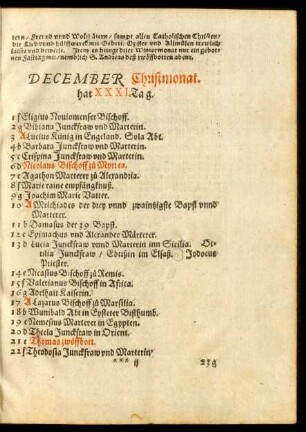 tern/ Freund vnnd Wolthätern/ sampt allen Catholischen Christen/
die Lieb vnnd hülff werck mit Gebett/ Opffer vnd Allmůsen trewlich
laiste vnd beweise. Item es bringt diser Wintermonat nur ein gebot-
nen Fasttag mit/ nemblich S. Andreas deß zwölffbotten abent.
DECEMBER Christmonat.
hat XXXI. Tag.
1 f Eligius Nouiomenser Bischoff.
2 g Bibiana Junckfraw vnd Marterin.
3 A Lucius Künig in Engeland. Sola Abt.
4 b Barbara Junckfraw vnd Marterin.
5 c Crispina Junckfraw vnd Marterin.
6 d Nicolaus Bischoff zů Myrren.
7 e Agathon Marterer zů Alexandria.
8 f Marie raine empfängknuß.
9 g Joachim Marie Vatter.
10 A Melchiades der drey vnnd zwaintzigste Bapst vnnd
Marterer.
11 b Damasus der 39. Bapst.
12 c Epimachus vnd Alexander Märterer.
13 d Lucia Junckfraw vnnd Marterin inn Sicilia. Ot-
tilia Junckfraw/ Ebtißin im Elsaß. Jodocus
Priester.
14 e Nicasius Bischoff zů Remis.
15 f Valerianus Bischoff in Africa.
16 g Adelhait Kaiserin.
17 A Lazarus Bischoff zů Marsilia.
18 b Wunibald Abt in Eysteter Bisthumb.
19 c Nemesius Marterer in Egypten.
20 d Thecla Junckfraw in Orient.
21 e Thomas zwölffbott.
22 f Theodosia Junckfraw vnd Marterin.
*** ij 23 g